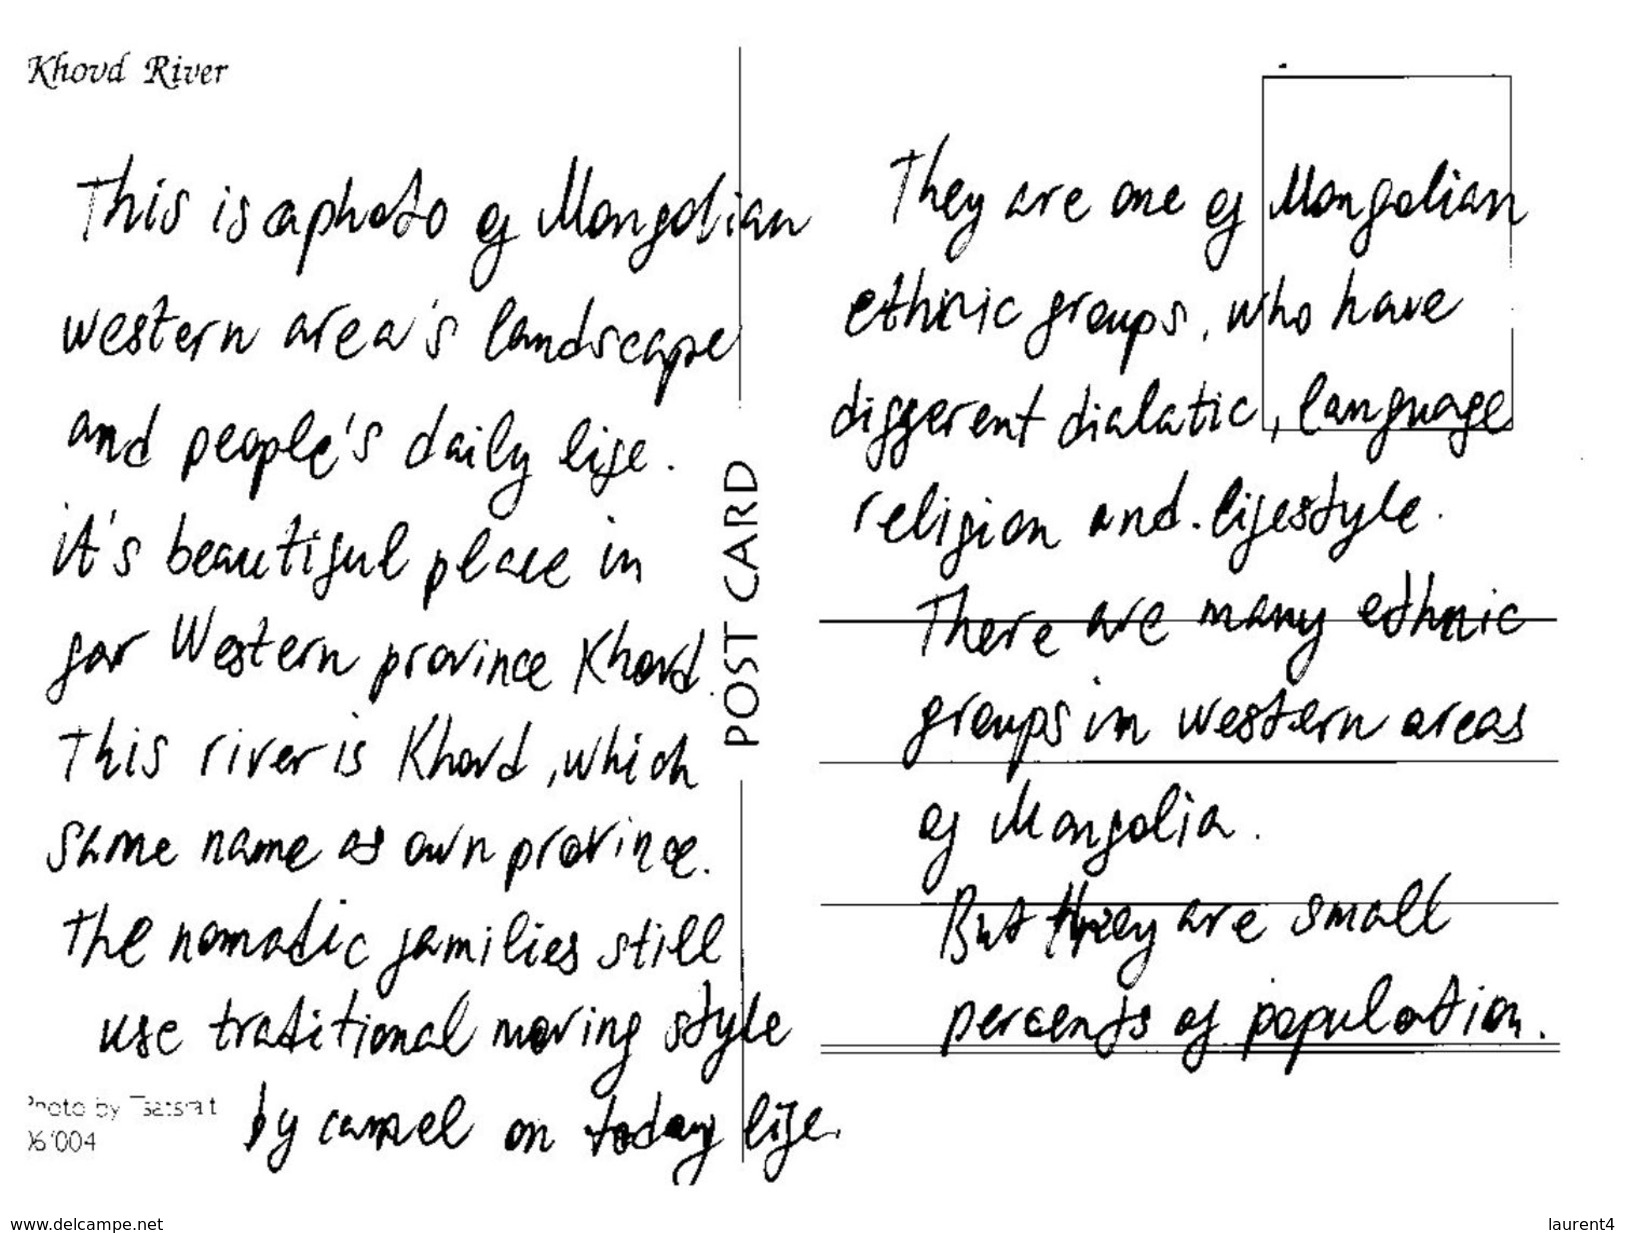 Khovd River
This is a photo of Mongolian
western area's landscape
and people's daily life.
it's beautiful place in
far Western province Khovd.
This river is Khovd, which
same name as own province.
The nomadic families still
use traditional moving style
by camel on today life.
Photo by
POST CARD
They are one of Mongolian
ethnic groups, who have
different dialatic, language
religion and lifestyle.
There are many ethnic
groups in western areas
of Mongolia.
But they are small
percents of population.
www.delcampe.net
laurent4